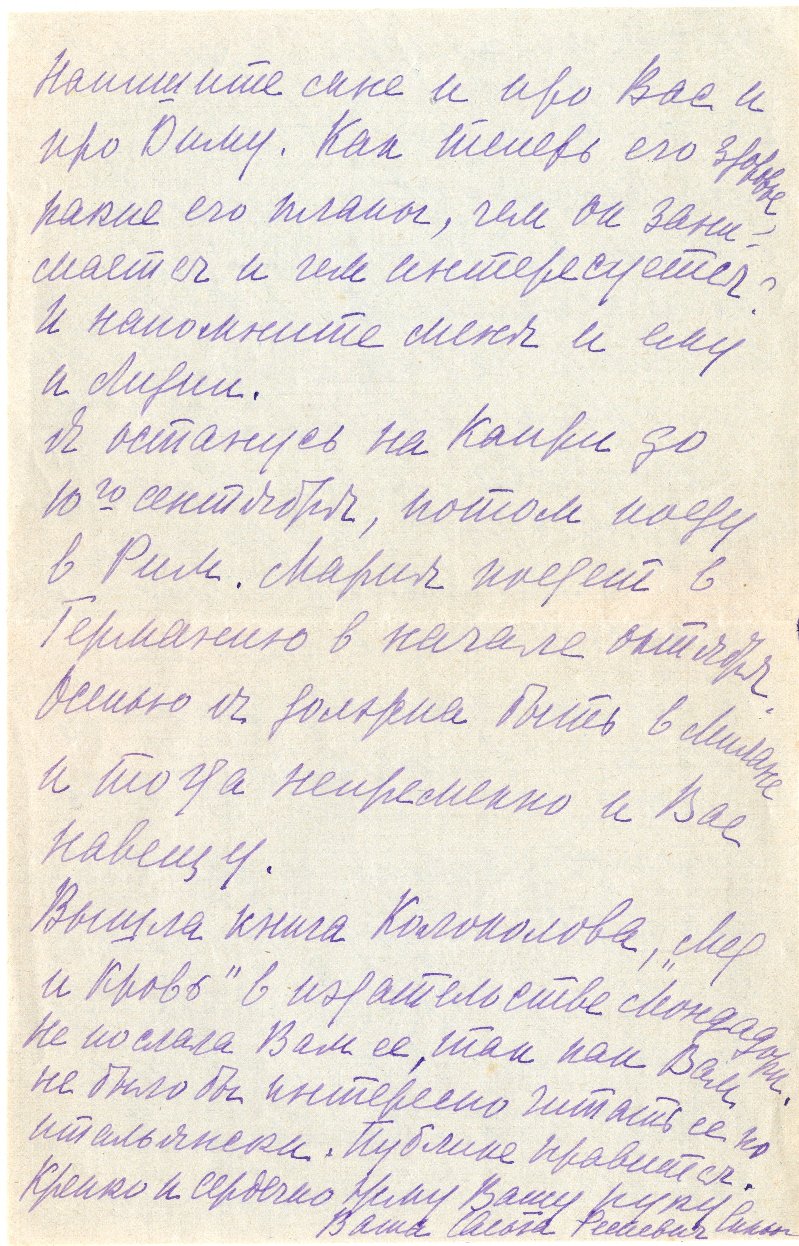 Напишите мне и про Вас и
про Диму. Как теперь его здоровье,
какие его планы, чем он зани-
мается и чем интересуется?
И напомните меня и ему
и Лидии.
Я останусь на Капри до
10го сентября, потом поеду
в Рим. Мария поедет в
Германию в начале октября.
Осенью я должна быть в Милане
и тогда непременно и Вас
навещу.
Вышла книга Колоколова, „Мед
и Кровь" в издательстве Мондадори.
Не послала Вам ее, так как Вам
не было бы интересно читать ее по
итальянски. Публике нравится.
Крепко и сердечно жму Вашу руку
Ваша Ресневич